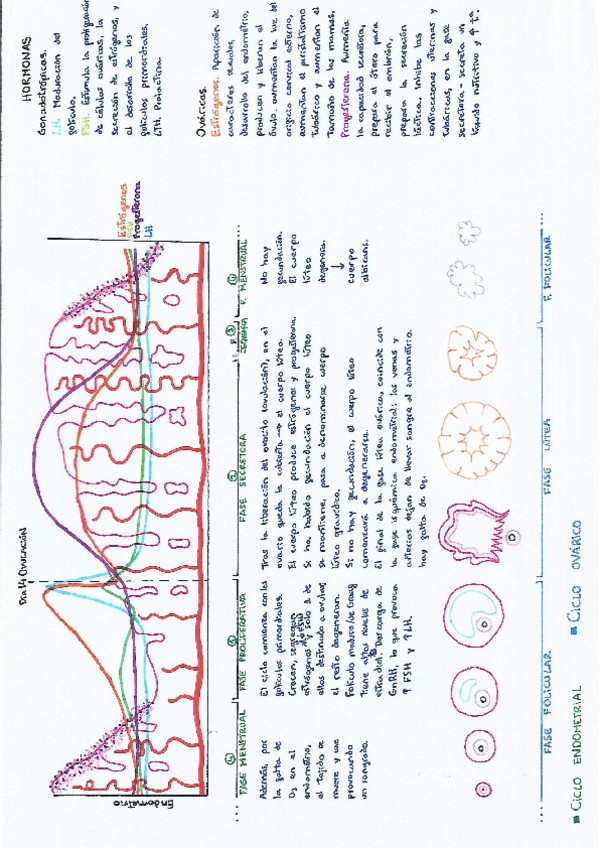 HORMONAS
Gonadotrópicas.
LH. Maduración del
folículo.
FSH. Estimula la proliferación
de células ováricas, la
secreción de estrógenos, y
el desarrollo de los
folículos primordiales.
LTH. Prolactina
Ováricas.
Estrógenos. Aparición de
caracteres sexuales,
desarrollo del endometrio,
producen y liberan el
óvulo. aumentan la luz del
orificio cervical externo,
aumentan el peristaltismo
tubárico y aumentan el
tamaño de las mamas.
Progesterona. Aumenta
la capacidad secretora,
prepara el útero para
recibir el embrión,
prepara la secreción
láctica, inhibe las
contracciones uterinas y
tubáricas, en la fase
secretora - secreta un
líquido nutritivo y ↑ tª.
Endometrio
Día 14 OVULACIÓN
Estrógenos
FSH
Progesterona
LH
④
FASE MENSTRUAL
Además, por
la falta de
O₂ en el
endometrio,
el tejido se
muere y cae
provocando
un sangrado.
①
FASE PROLIFERATIVA
El ciclo comienza con los
folículos primordiales.
Crecen, secretan
estrógenos y solo 1 de
ellos destinado a ovular,
el resto degeneran.
Folículo maduro/de Graaf
Trane altos niveles de
estradiol. Descarga de
GnRH, lo que provoca
↑ FSH y ↑ LH.
②
FASE SECRETORA
Tras la liberación del ovocito (ovulación), en el
ovario queda la cubierta → el cuerpo lúteo.
El cuerpo lúteo produce estrógenos y progesterona.
Si ha habido fecundación el cuerpo lúteo
se mantiene, pasa a denominarse cuerpo
lúteo gravídico.
Si no hay fecundación, el cuerpo lúteo
comenzará a degenerarse.
El final de la fase lútea ovárica, coincide con
la fase isquémica endometrial: las venas y
arterias dejan de llevar sangre al endometrio.
hay falta de O₂.
F. ③
④
F. MENSTRUAL
No hay
fecundación.
El cuerpo
lúteo
degenera.
↓
cuerpo
albicans.
FASE FOLICULAR
FASE LÚTEA
F. FOLICULAR
CICLO ENDOMETRIAL
CICLO OVÁRICO